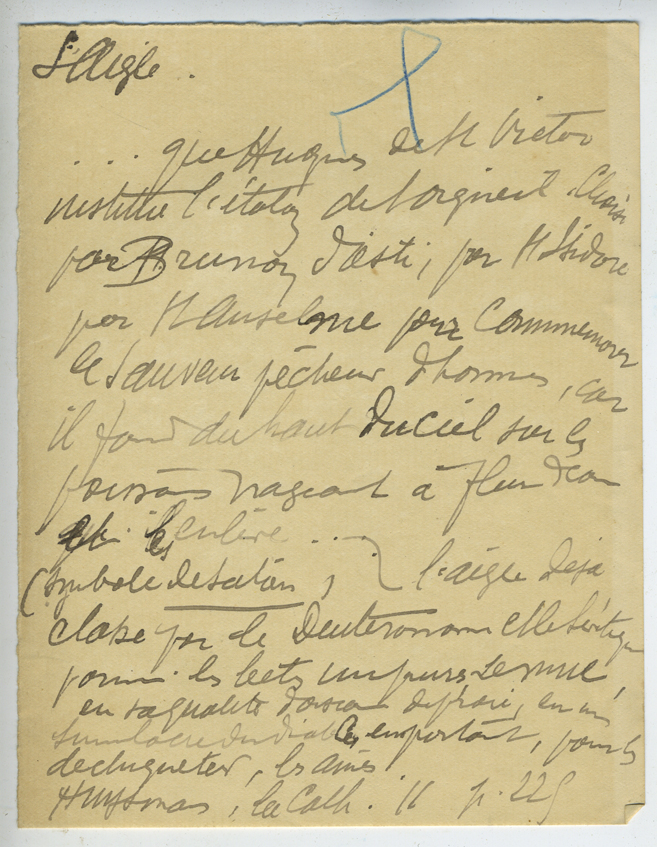 L'Aigle.
... que Hugues de St Victor
institue l'étalon de l'orgueil. Choisi
par Brunon d'asti, par St Isidore
par St Anselme pour Commemorer
le Sauveur pêcheur d'hommes, car
il fond du haut du ciel sur les
poissons nageant à fleur d'eau
et les enlève ...
(symbole de satan, l'aigle déjà
classé par le Deuteronome et le Lévitique
parmi les betes impures se mue,
en sa qualité d'oiseau de proie, en un
simulacre du diable emportant, pour les
dechiqueter, les âmes
Huysmans, la Cath. II p. 225